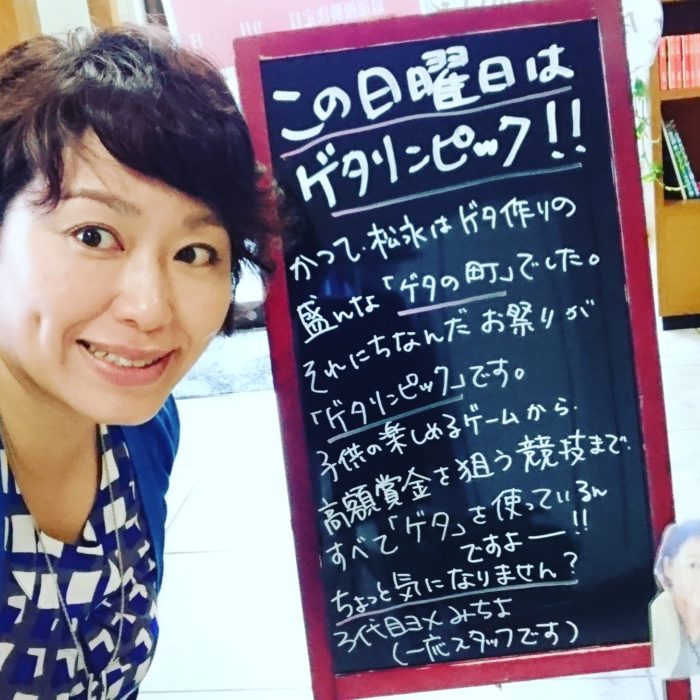 この日曜日は
ゲタリンピック!!
かつて、松永はゲタ作りの
盛んな「ゲタの町」でした。
それにちなんだお祭りが
「ゲタリンピック」です。
子供の楽しめるゲームから、
高額賞金を狙う競技まで、
すべて「ゲタ」を使っているん
ですよー!!
ちょっと気になりません?
3代目ヨメみちよ
(一応スタッフです)